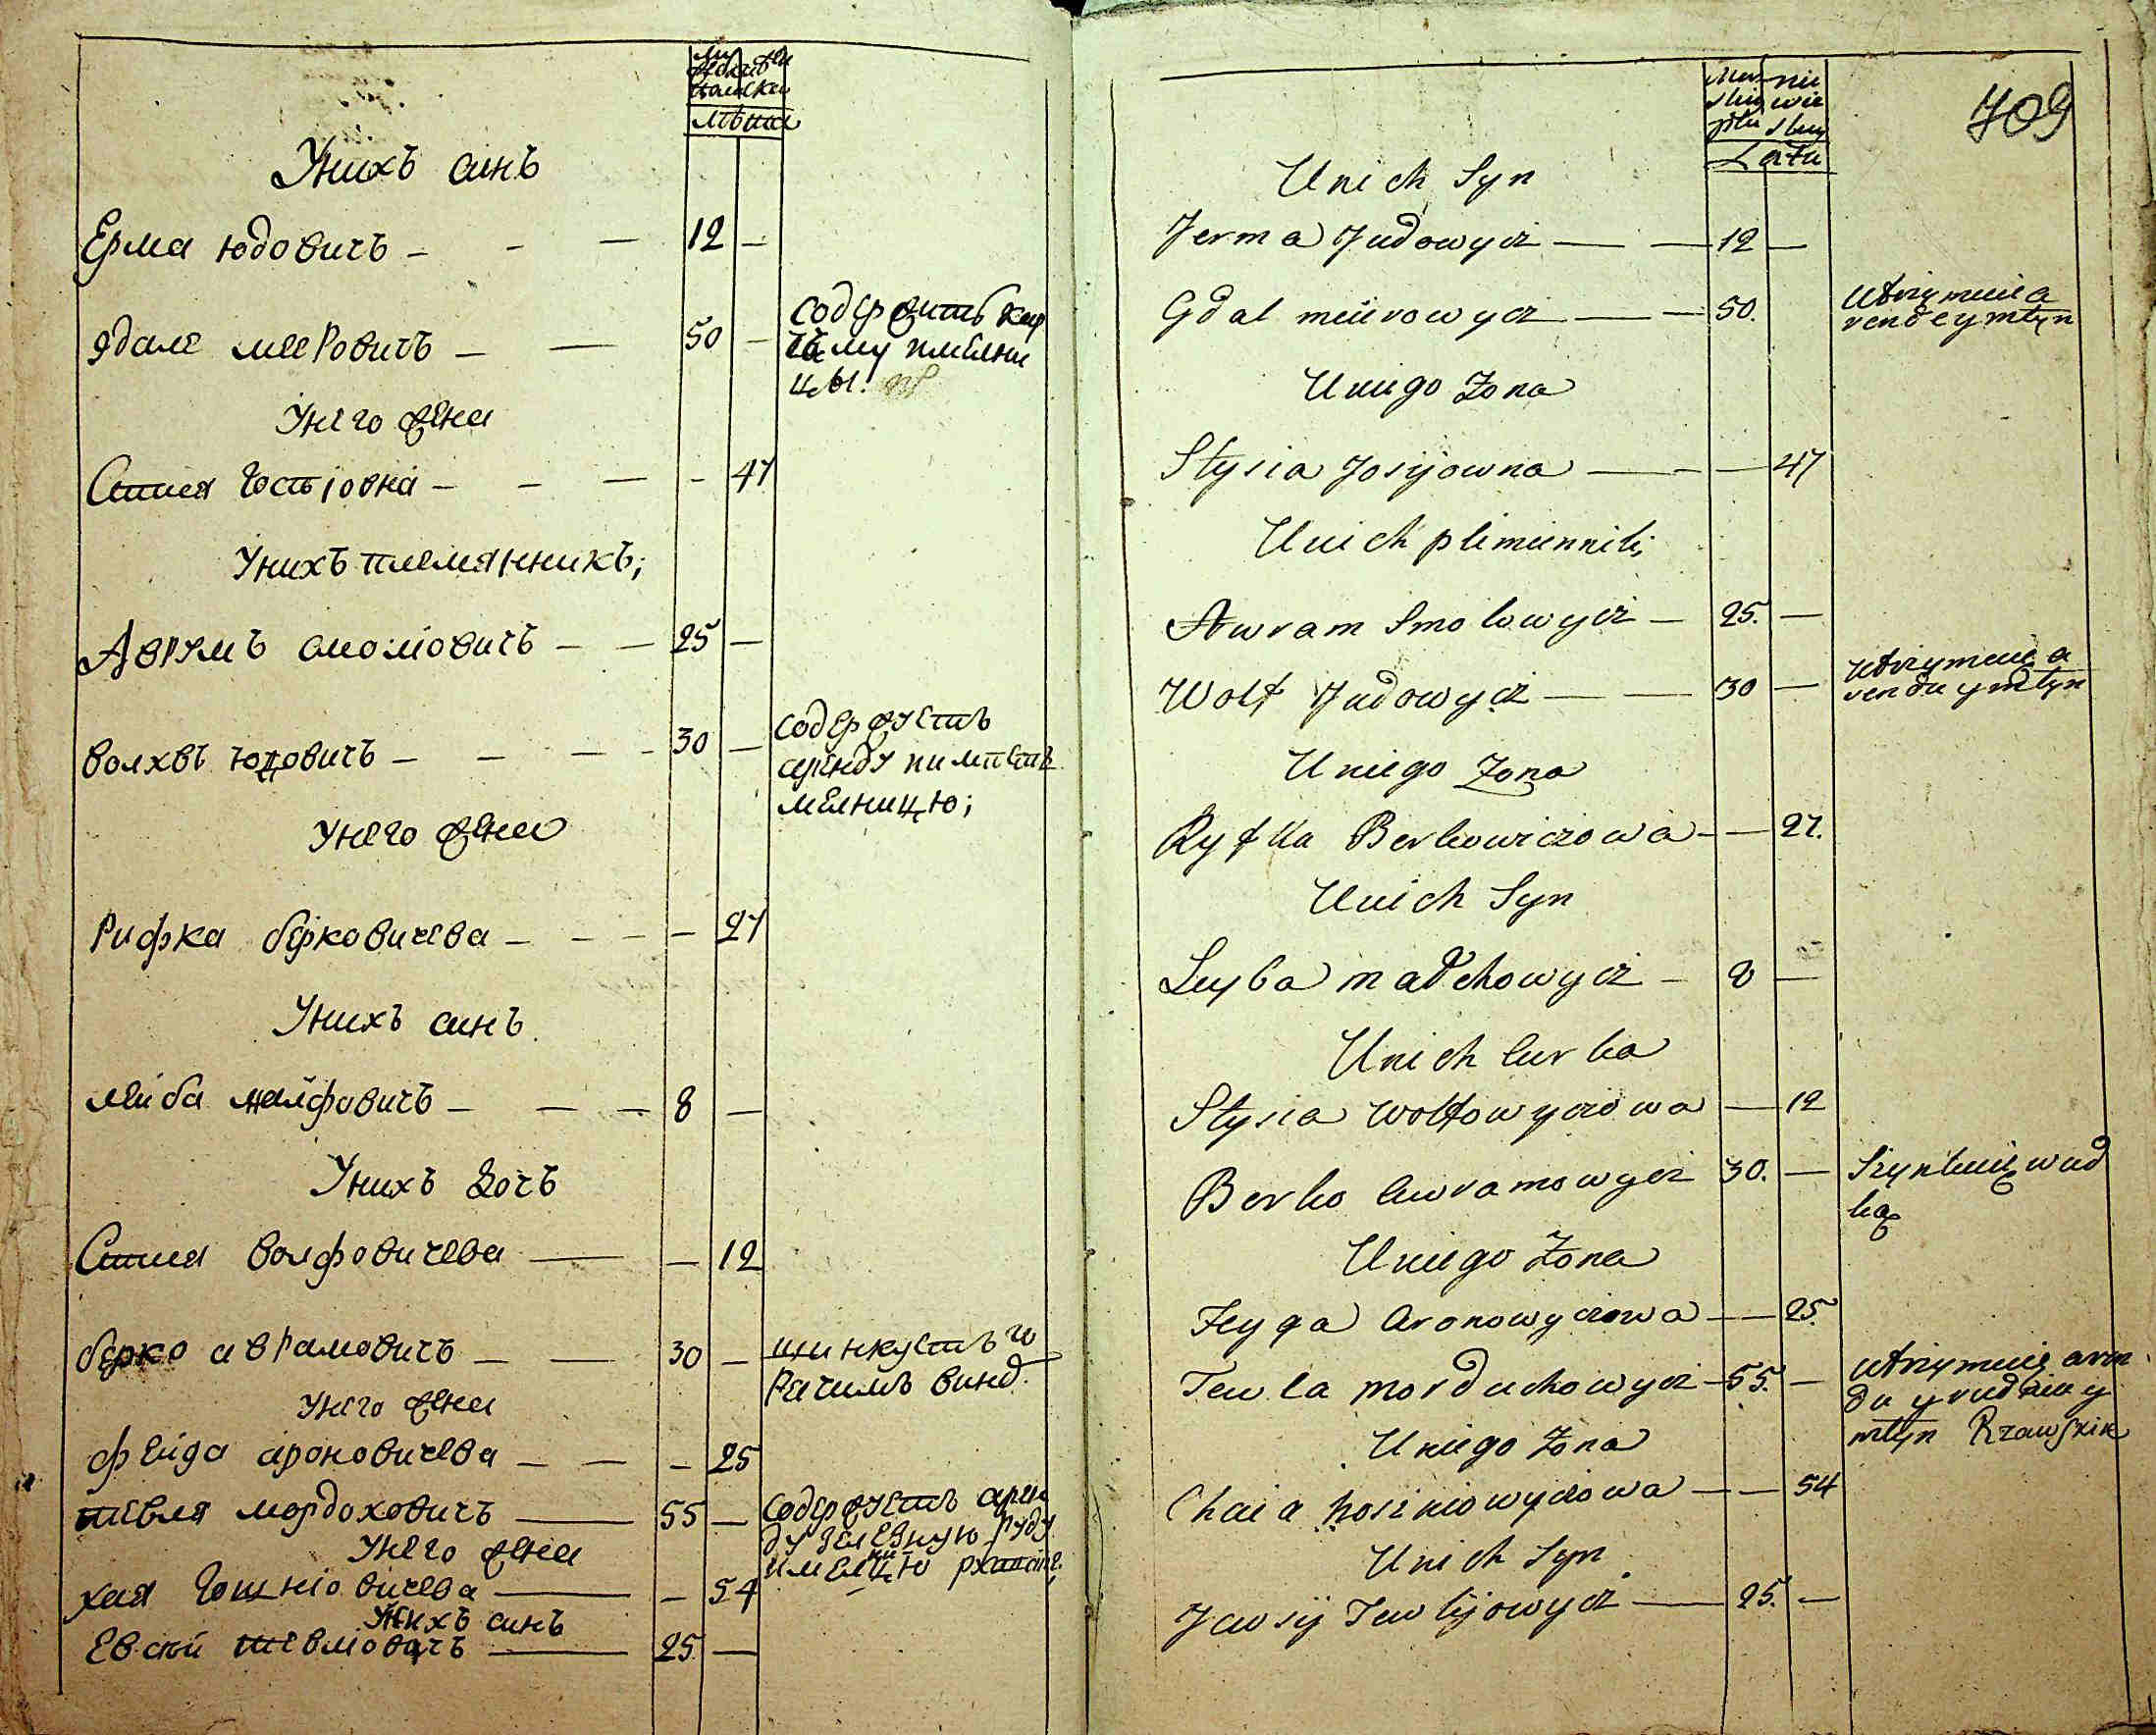 Унихъ синъ
Ерма юдовичъ — 12 —
гдале мееровичъ — 50 —
содержитъ
цы.
Унего жена
Стися Иосiовна — 47
Унихъ племянникъ;
Аврумъ смоловичъ — 25 —
волхвъ юдовичъ — 30 —
содержуетъ
аренду
мелницю;
Унего жена
Рифка берковичева — 27
Унихъ синъ
лейба малфовичъ — 8 —
Унихъ дочъ
Стися волфовичева — 12
берко аврамовичъ — 30 —
шинкуетъ го
рачимъ винд.
Унего жена
фейга ароновичева — — 25
тевля мордоховичъ — 55 —
Содержуетъ арен
ду железную руду
Унего жена
хая Гошнiовичева — 54
Унихъ синъ
Евсей тевлiовичъ — 25 —
709
Latu
Unich Syn
Jerma Judowycz — 12 —
Gdal meiirowycz — 50.
Utrzymuie a
rende y młyn
Uniego Zona
Stysia Josijowna — 47
Unich plimiennik;
Awram Smolowycz — 25. —
Wolf Judowycz — 30 —
Utrzymuie a
rendu y młyn
Uniego Zona
Ryfka Berkowiczowa — 27.
Unich Syn
Leyba malchowycz — 8 —
Unich Curka
Stysia Wolfowyczowa — 12
Berko Awramowycz 30. —
Szynkuie wud
ką
Uniego Zona
Feyga Aronowyczowa — 25.
Tewla morduchowycz — 55. —
Utrzymuie aren
du y rudniu y
młyn Rzawskik
Uniego Zona
Chaia hoszniowyczowa — 54
Unich Syn
Jewsij Tewlijowycz — 25. —